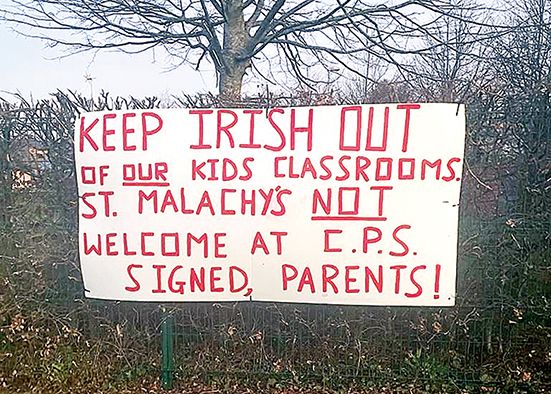 KEEP IRISH OUT
OF OUR KIDS CLASSROOMS.
ST. MALACHY'S NOT
WELCOME AT C.P.S.
SIGNED, PARENTS!